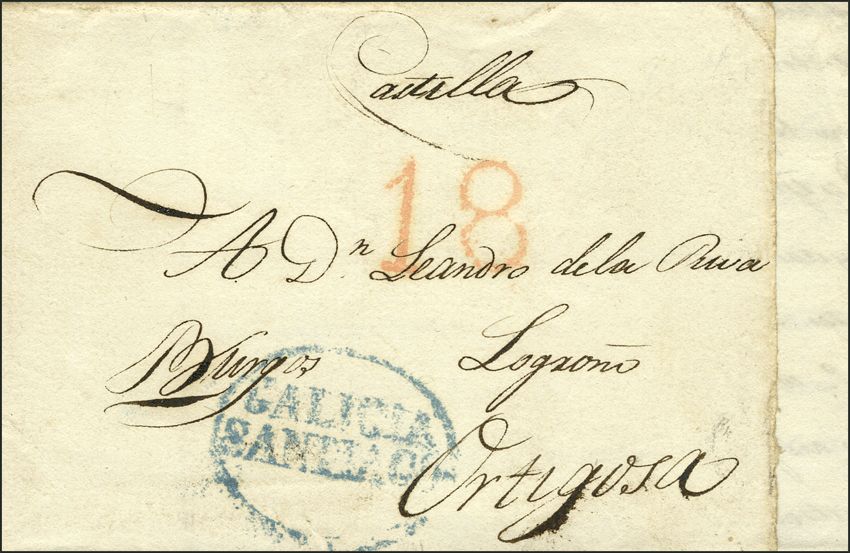 Castilla
18
A Dn Leandro de la Riva
Burgos Logroño
GALICIA
SANTIAGO
Ortigosa